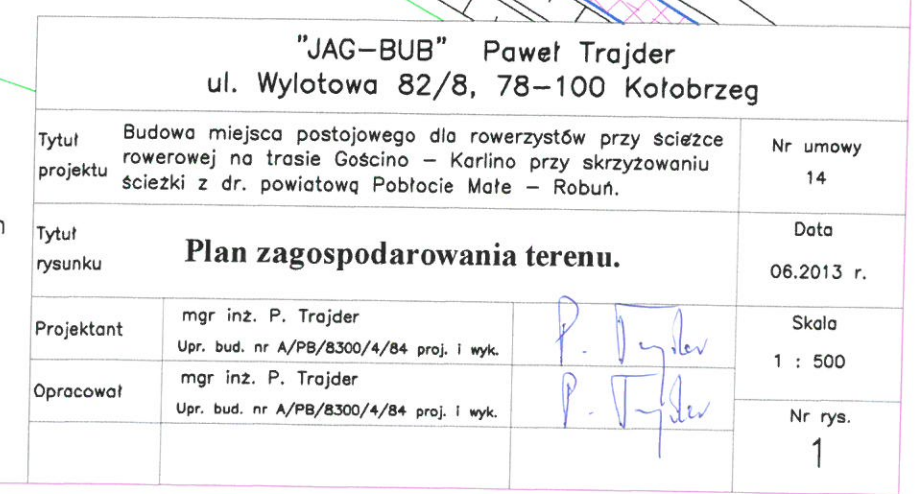 "JAG-BUB" Paweł Trajder
ul. Wylotowa 82/8, 78-100 Kołobrzeg
Tytuł projektu
Budowa miejsca postojowego dla rowerzystów przy ścieżce
rowerowej na trasie Gościno - Karlino przy skrzyżowaniu
ścieżki z dr. powiatową Pobłocie Małe - Robuń.
Nr umowy
14
Tytuł
rysunku
Plan zagospodarowania terenu.
Data
06.2013 r.
Projektant
mgr inż. P. Trajder
Upr. bud. nr A/PB/8300/4/84 proj. i wyk.
P. Trajder
Skala
1 : 500
Opracował
mgr inż. P. Trajder
Upr. bud. nr A/PB/8300/4/84 proj. i wyk.
P. Trajder
Nr rys.
1